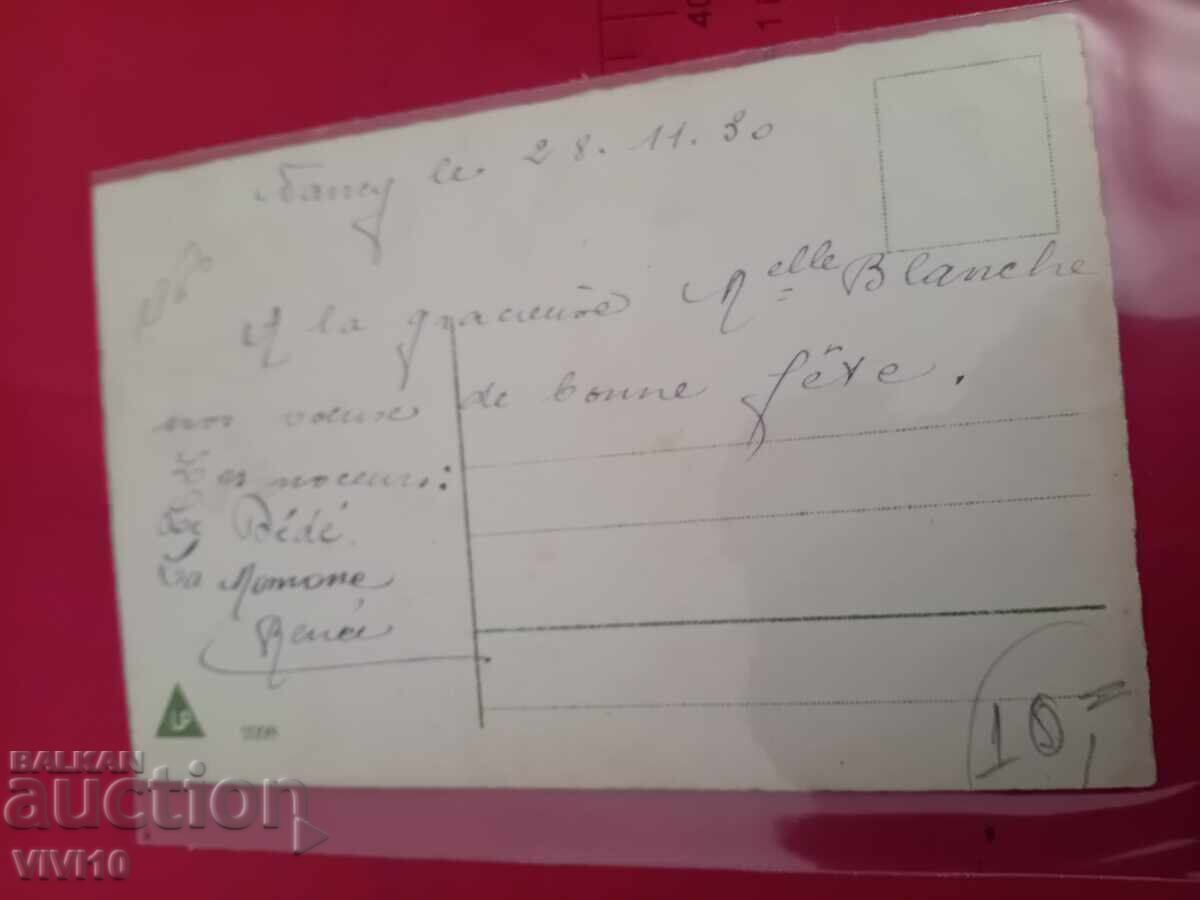 Nancy le 28.11.30
A la gracieuse Melle Blanche
nos voeux de bonne fête.
Les noceurs:
Le Bédé
La Momone
Renée
10,-
BALKAN
auction
VIVI10